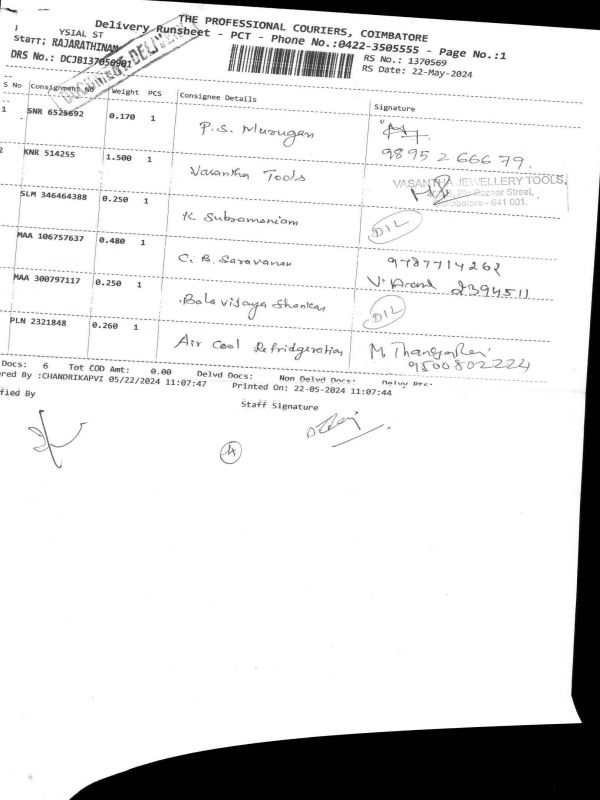 THE PROFESSIONAL COURIERS, COIMBATORE
Delivery Runsheet - PCT - Phone No.:0422-3505555 - Page No.:1
YSIAL ST
Staff: RAJARATHINAM
DRS No.: DCJB137056901
RS No.: 1370569
RS Date: 22-May-2024
S No Consignment No Weight PCS Consignee Details Signature
1 SNR 6525692 0.170 1 P.S. Murugan
98952 66679.
2 KNR 514255 1.500 1 Vasantha Tools VASANTHA JEWELLERY TOOLS,
Bazaar Street,
Coimbatore - 641 001.
SLM 346464388 0.250 1 K Subramaniam DIL
MAA 106757637 0.480 1 C. B. Saravanan 9787714262
MAA 300797117 0.250 1 Bala vijaya Shankar DIL
2394511
PLN 2321848 0.260 1 Air Cool Refridgeration M. Thangaraj
9500802224
Docs: 6 Tot COD Amt: 0.00 Delvd Docs: Non Delvd Docs:
ered By :CHANDRIKAPVI 05/22/2024 11:07:47 Printed On: 22-05-2024 11:07:44
ified By Staff Signature
4